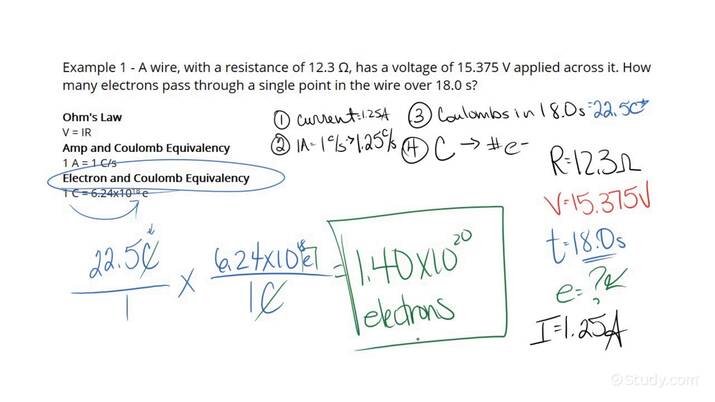 Example 1 - A wire, with a resistance of 12.3 Ω, has a voltage of 15.375 V applied across it. How
many electrons pass through a single point in the wire over 18.0 s?
Ohm's Law
V = IR
Amp and Coulomb Equivalency
1 A = 1 C/s
Electron and Coulomb Equivalency
1 C = 6.24x10¹⁸ e
① current=1.25A
② 1A=1C/s→1.25C/s
③ Coulombs in 18.0s=22.5C
④ C → #e-
R=12.3Ω
V=15.375V
t=18.0s
e=?
I=1.25A
22.5C/1 x 6.24x10¹⁸e-/1C = 1.40x10²⁰
electrons
©Study.com